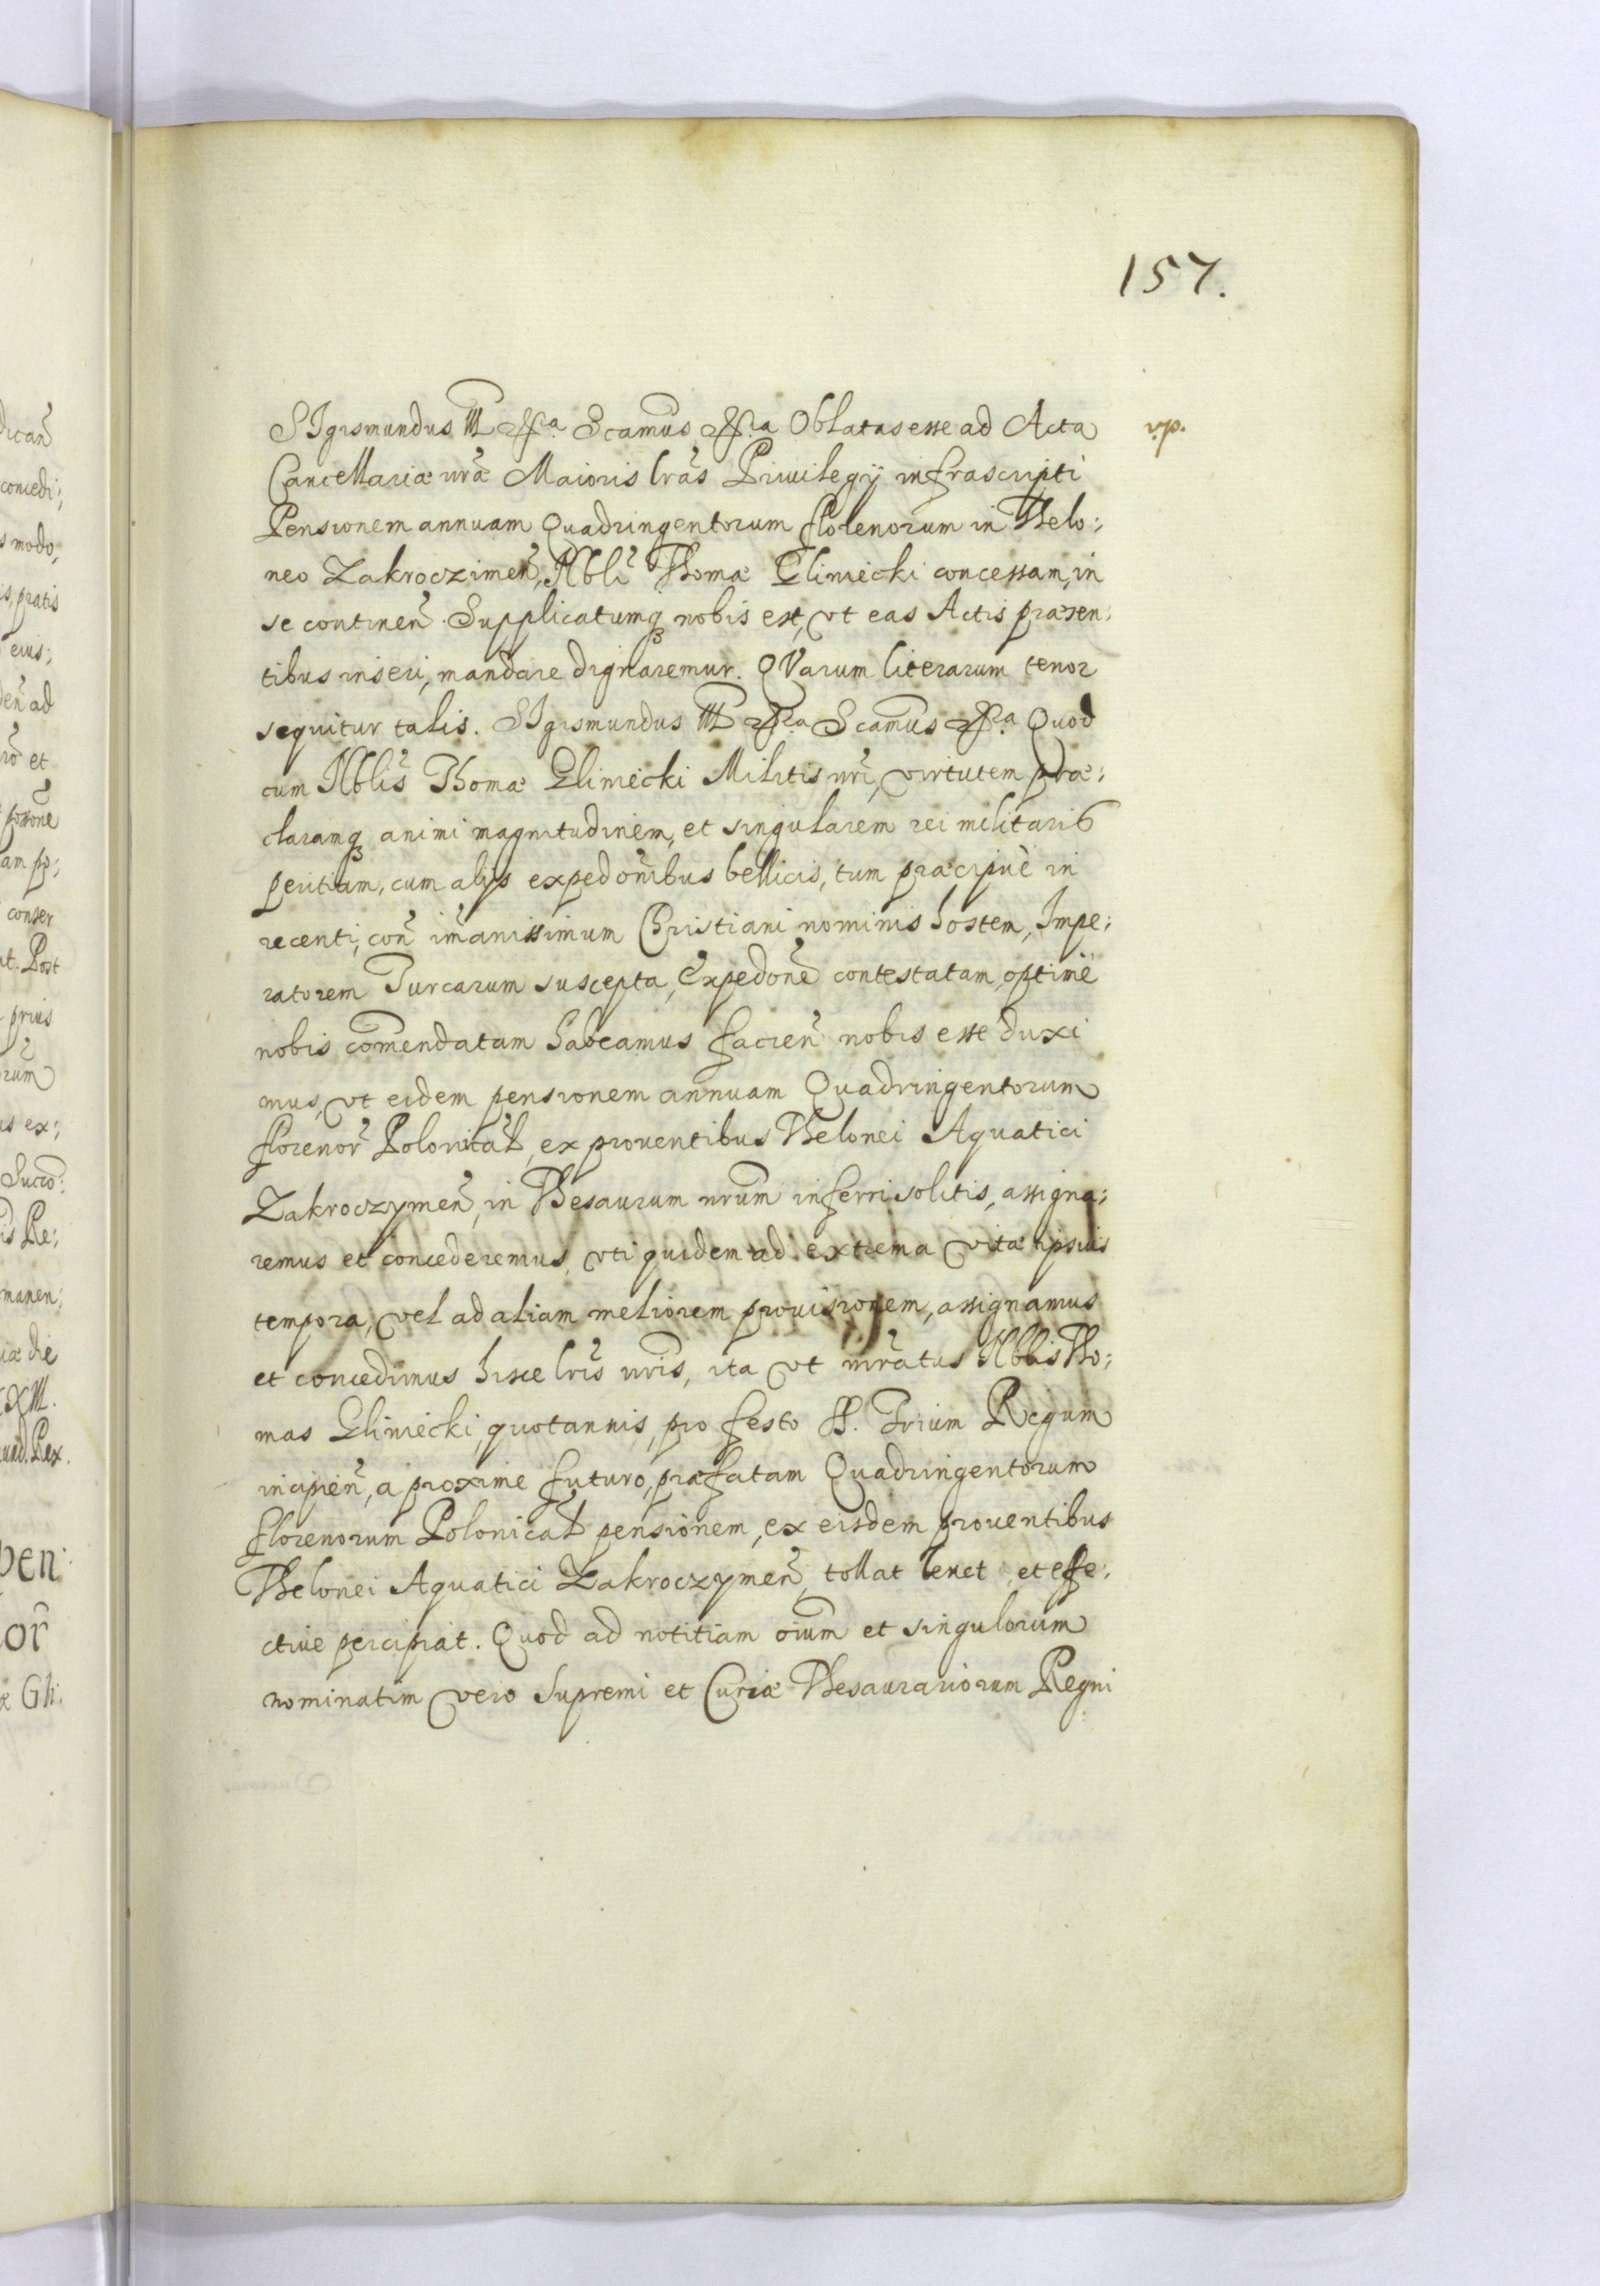 157.
SIgismundus III etc Scamus etc Oblatas esse ad Acta
Cancellariæ nræ Maioris lras Priuilegÿ infrascripti
Pensionem annuam Quadringentorum florenorum in Thelo:
neo Zakroczimen, Nbli Thomæ Glinieċki concessam, in
se continen. Supplicatumq nobis est, vt eas Actis præsen:
tibus inseri, mandare dignaremur. QVarum literarum tenor
sequitur talis. SIgismundus III etc Scamus etc Quod
cum Nblis Thomæ Glinieċki Militis nri, virtutem præ:
claramq animi magnitudinem, et singularem rei militaris
peritiam, cum alÿs expedonibus bellicis, tum præcipuè in
recenti, con imanissimum Christiani nominis hostem, Impe:
ratorem Turcarum suscepta, Expedone contestatam, optime
nobis comendatam habeamus facien nobis esse duxi
mus, vt eidem pensionem annuam Quadringentorum
florenor Polonical, ex prouentibus Thelonei Aquatici
Zakroczymen, in Thesaurum nrum inferri solitis, assigna:
remus et concederemus, vti quidem ad extrema vitæ ipsius
tempora, vel ad aliam meliorem prouisionem, assignamus
et concedimus hisce lris nris, ita vt mratus Nblis Tho:
mas Glinieċki, quotannis, pro festo SS. Trium Regum
incipien, a proxime futuro, præfatam Quadringentorum
florenorum Polonical pensionem, ex eisdem prouentibus
Thelonei Aquatici Zakroczymen, tollat leuet et effe:
ctiue percipiat. Quod ad notitiam oium et singulorum
nominatim vero Supremi et Curiæ Thesaurariorum Regni